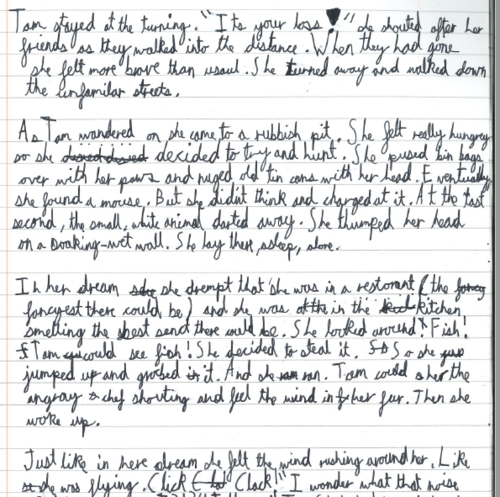 Tam stayed at the turning. "Its your loss!" she shouted after her
friends as they walked into the distance. When they had gone
she felt more brave than usaul. She turned away and walked down
the unfamilar streets.
As Tam wandered on she came to a rubbish pit. She felt really hungray
so she decided to try and hunt. She pused bin bags
over with her paws and nuged old tin cans with her head. Eventually
she found a mouse. But she didn't think and charged at it. At the last
second, the small, white animal darted away. She thumped her head
on a soaking-wet wall. She lay there, asleep, alone.
In her dream she drempt that she was in a restorant (the
fancyest there could be) and she was in the kitchen
smelling the best send there could be. She looked around. "Fish!
Tam could see fish! She decided to steal it. So she
jumped up and grabed it. And she ran. Tam could her the
angray chef shouting and feel the wind in her fur. Then she
woke up.
Just like in here dream she felt the wind rushing around her. Like
she was flying. Click Clack "I wonder what that noise